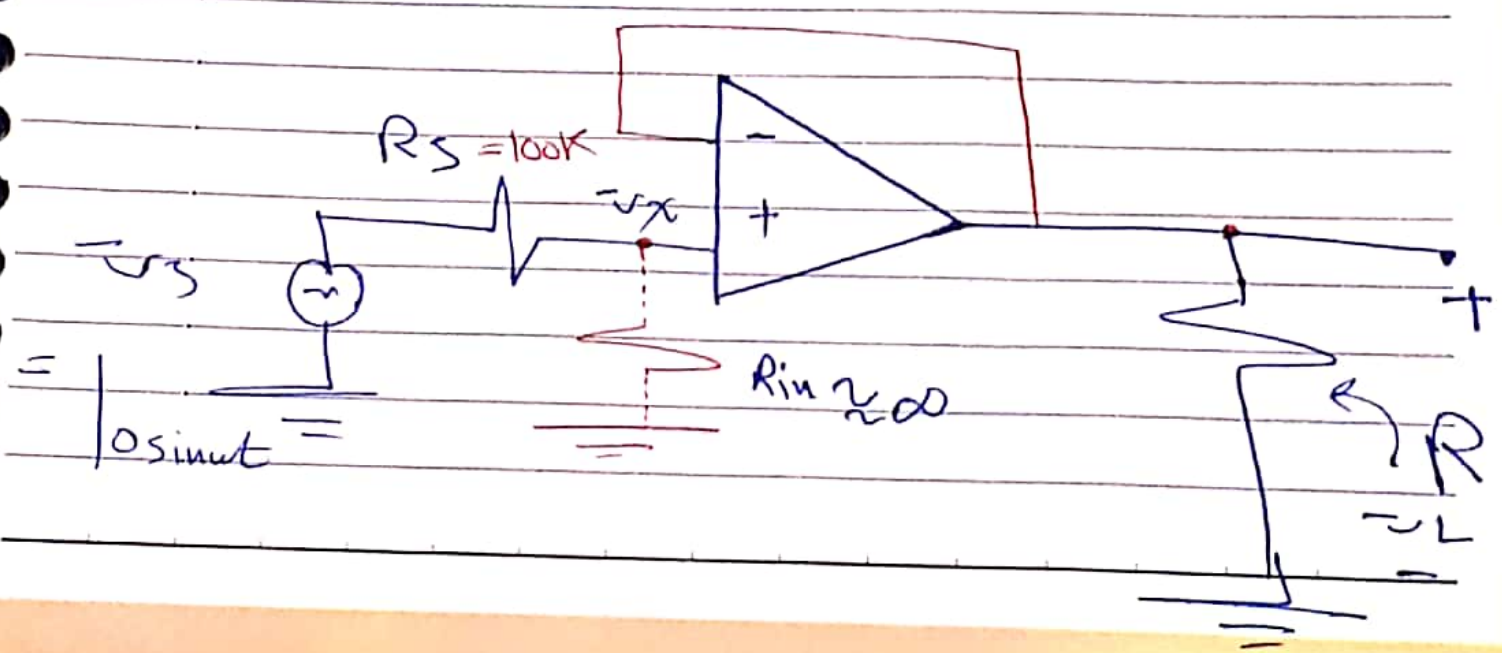 Rs = 100K
-
vx
+
vs
= 10 sinwt
~
Rin ≈ ∞
+
R
vL
-